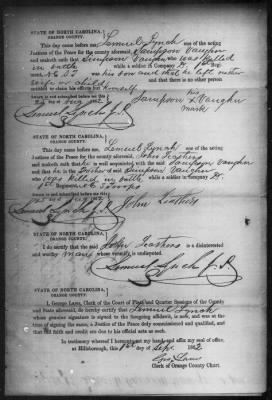 STATE OF NORTH CAROLINA,
ORANGE COUNTY.
This day came before me, Lemuel Lynch one of the acting
Justices of the Peace for the county aforesaid, Sampson Vaughn
and maketh oath that Simpson Vaughn who was killed
in battle while a soldier in Company D, 1st Regi-
ment, N.C. S.T. was his son and that he left neither
wife or child and that there is no other person
entitled to claim his effects but himself
Sworn to and subscribed before me this
day of Aug 1862
Sampson X Vaughn
his
mark
Lemuel Lynch J.P.
STATE OF NORTH CAROLINA,
ORANGE COUNTY.
This day came before me, Lemuel Lynch one of the acting
Justices of the Peace for the county aforesaid, John Leathers
and maketh oath that he is well acquainted with the said Sampson Vaughn
and that he is the Father of said Simpson Vaughn
who was killed in battle while a soldier in company D,
1st Regiment N.C. Troops
Sworn to and subscribed before me
Lemuel Lynch J.P. John Leathers
STATE OF NORTH CAROLINA,
ORANGE COUNTY.
I do certify that the said John Leathers is a disinterested
and worthy man whose veracity is undisputed.
Lemuel Lynch J.P.
STATE OF NORTH CAROLINA,
ORANGE COUNTY.
I, George Laws, Clerk of the Court of Pleas and Quarter Sessions of the County
and State aforesaid, do hereby certify that Lemuel Lynch
whose genuine signature is signed to the foregoing affidavit, is now, and was at the
time of signing the same, a Justice of the Peace duly commissioned and qualified, and
that full faith and credit are due to his official acts as such.
In testimony whereof I hereunto set my hand, and affix my seal of office,
at Hillsborough, this 1st day of Sept. 1862
Geo. Laws
Clerk of Orange County Court.